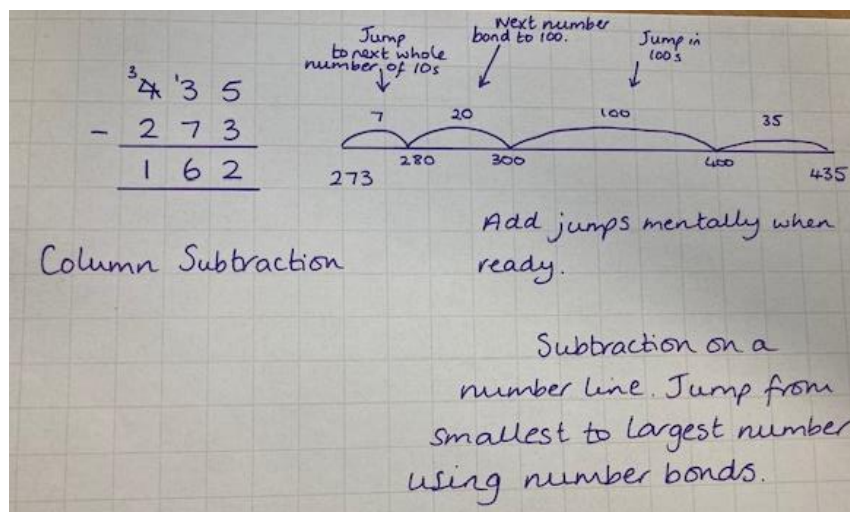 ³4 ¹3 5
- 2 7 3
1 6 2
Column Subtraction
Jump
to next whole
number of 10s
Next number
bond to 100.
Jump in
100s
7 20 100 35
273 280 300 400 435
Add jumps mentally when
ready.
Subtraction on a
number line. Jump from
smallest to largest number
using number bonds.